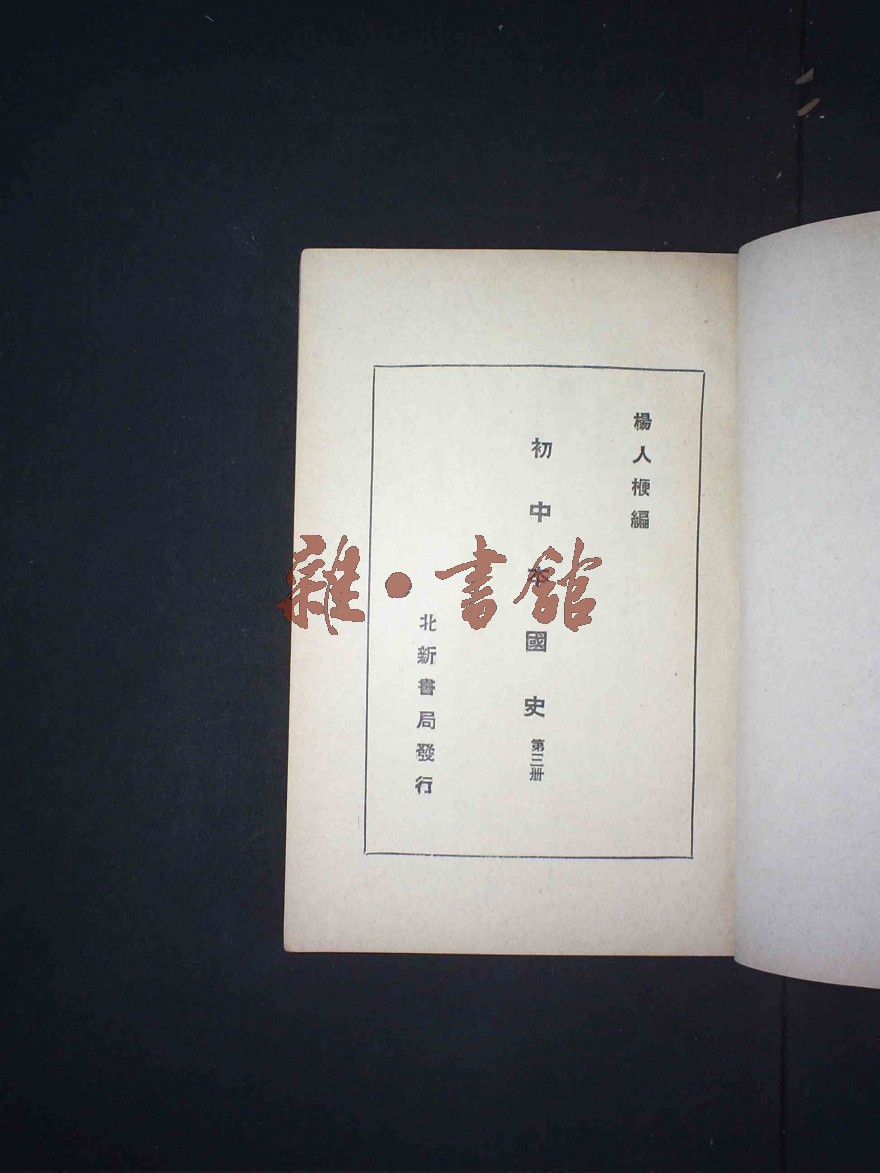 楊人楩編
初中本國史 第三册
北新書局發行
雜·書館